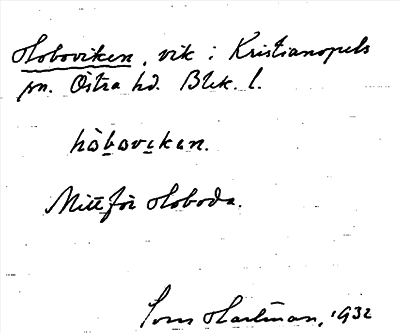 Hoboviken, vik i Kristianopels
sn. Östra hd. Blek. l.
håbovikan.
Mitt för Hoboda.
Hartman, 1932